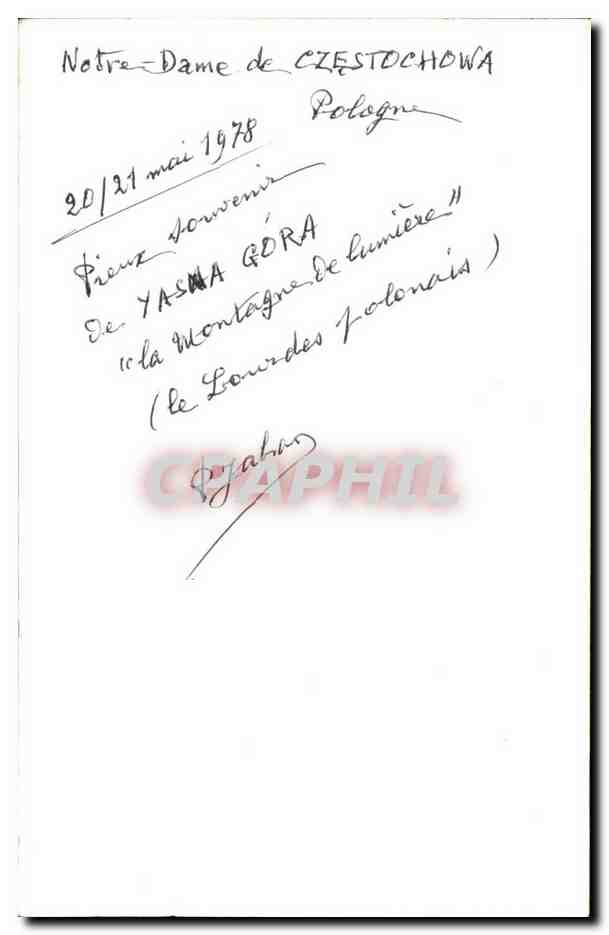 Notre-Dame de CZĘSTOCHOWA
Pologne
20/21 mai 1978
Pieux souvenir
de YASNA GÓRA
"la Montagne de lumière"
(le Lourdes polonais)
CPAPHIL